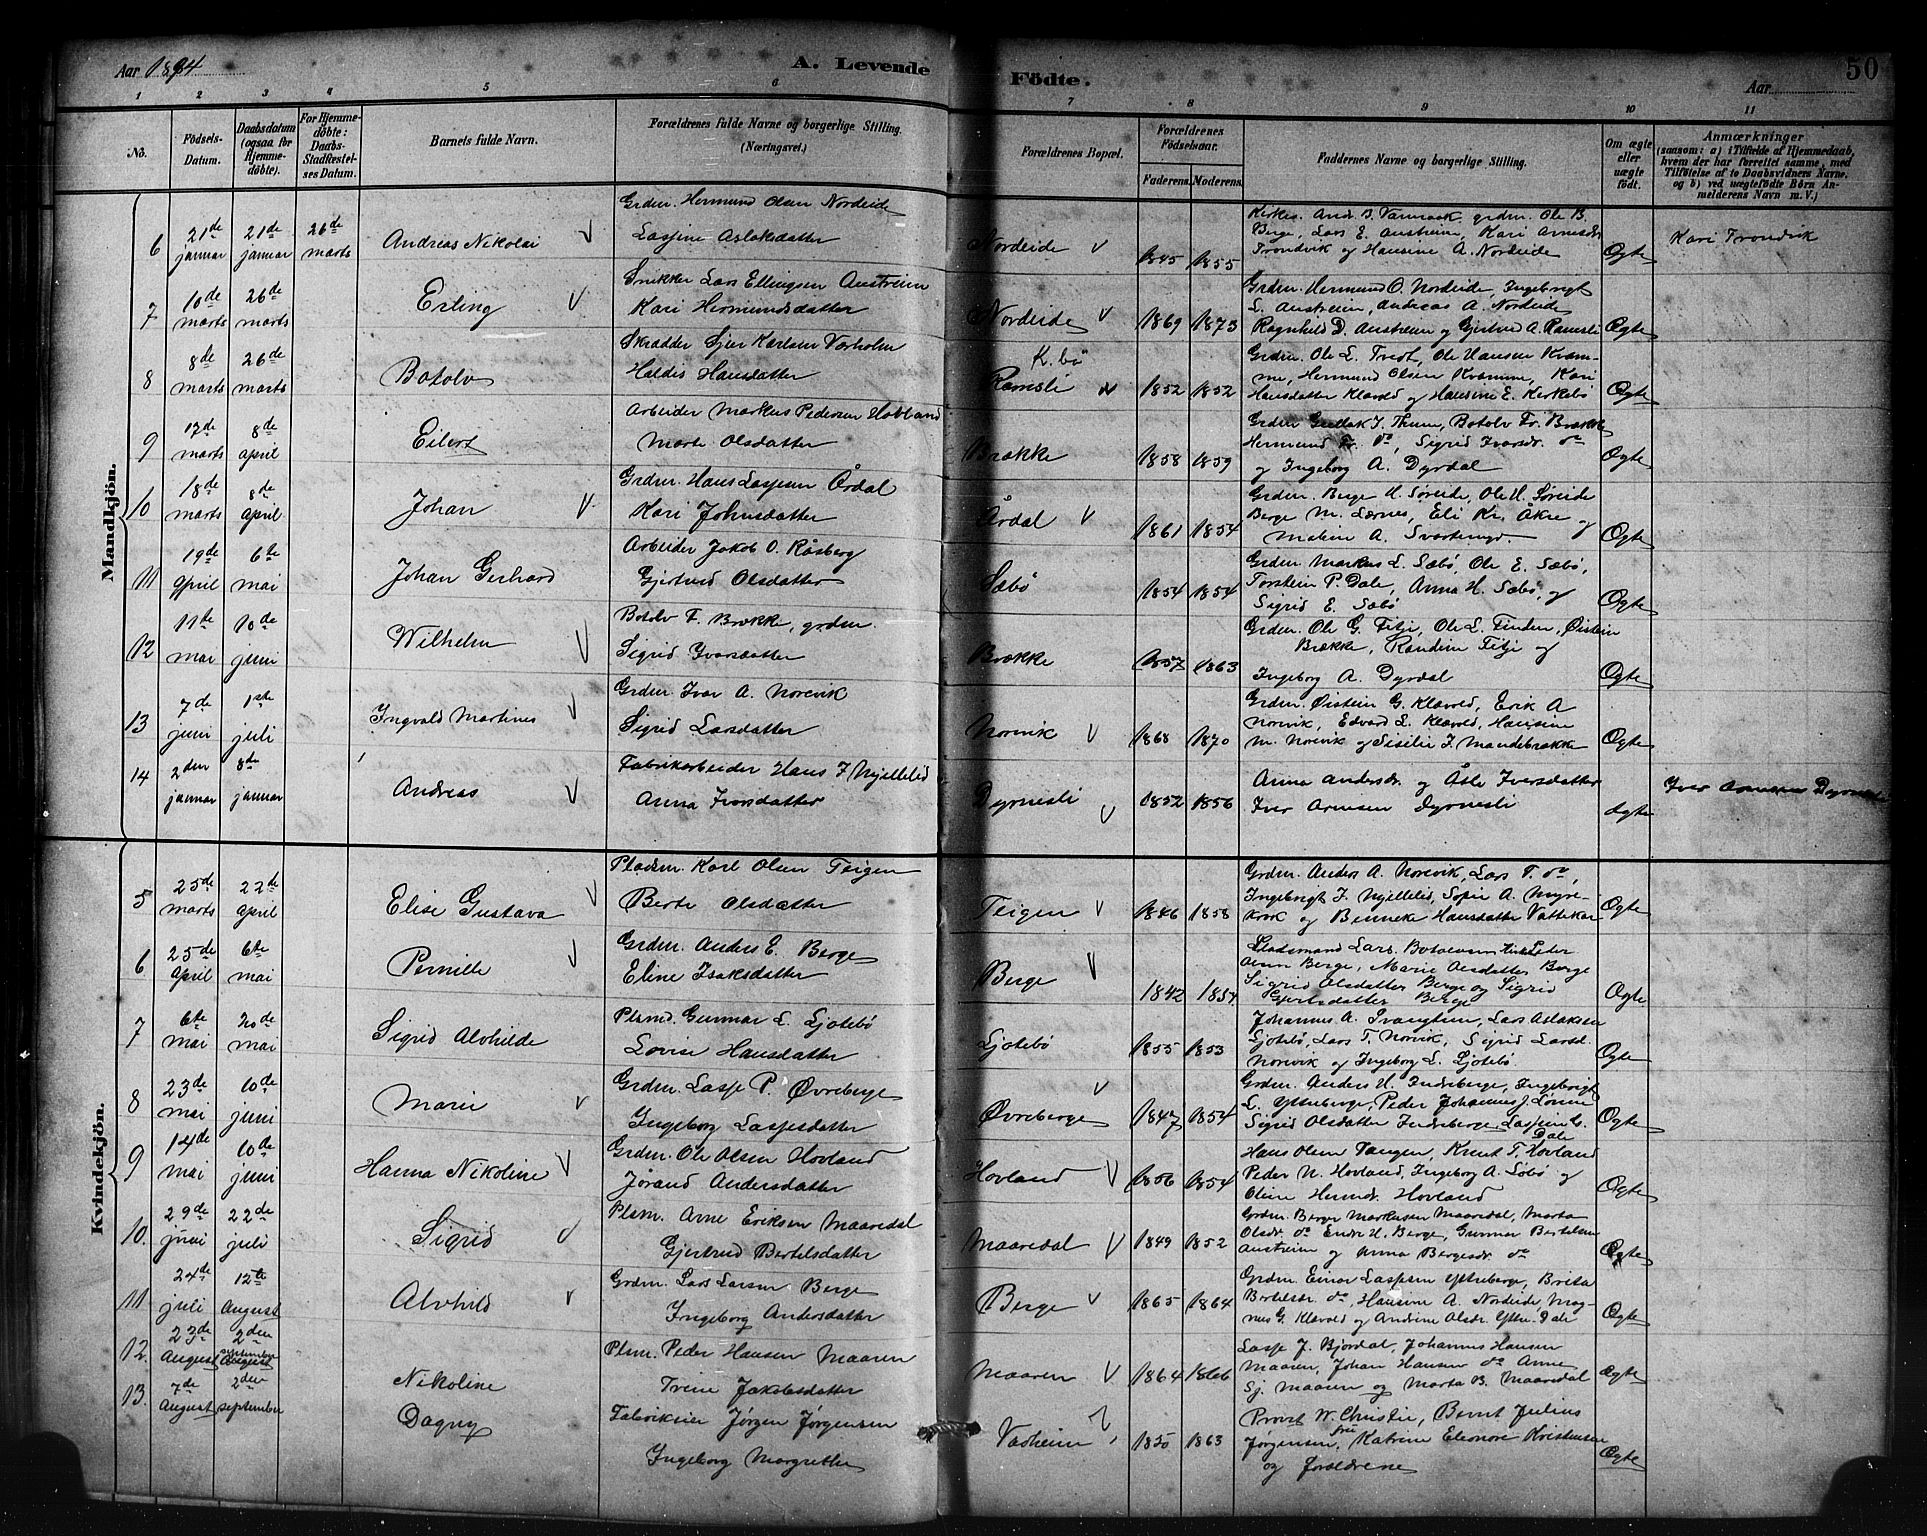 Aar 1894
A. Levende Födte.
Aar
50
1 2 3 4 5 6 7 8 9 10 11
No.
Födsels-Datum.
Daabsdatum (ogsaa for Hjemme-døbte).
For Hjemme-døbte: Daabs-Stadfæstel-ses Datum.
Barnets fulde Navn.
Forældrenes fulde Navne og borgerlige Stilling.
(Næringsvei.)
Forældrenes Bopæl.
Forældrenes Födselsaar.
Faderens. Moderens.
Faddernes Navne og borgerlige Stilling.
Om ægte eller uægte födt.
Anmærkninger
(saasom: a) i Tilfælde af Hjemmedaab,
hvem der har forrettet samme, med
Tilföielse af to Daabsvidners Navne.
og b) ved uægtefödte Börn An-
melderens Navn m. V.)
Mandkjön.
6 21de januar 21de januar 26de marts
Andreas Nikolai
Grdm. Hermund Olsen Nordeide
Lasjine Aslaksdatter
Nordeide
1845 1855
Kirkes. And. B. Varmaak, grdm. Ole B.
Berge, Lars E. Austreim, Kari Arnesdr
Trondvik og Hansine A. Nordeide
Ægte
Kari Trondvik
7 10de marts 26de marts
Erling
Snikker Lars Ellingsen Austreim
Kari Hermundsdatter
Nordeide
1869 1873
Grdm. Hermund O. Nordeide, Ingebrigt
L. Austreim, Andreas A. Nordeide
Ragnhild D. Austreim og Gjertrud A. Ramsli
Ægte
8 8de marts 26de marts
Botolv
Skrædder Sjur Karlsen Varholm
Haldis Hansdatter
K. bö
Ramsli
1852 1852
Grdm. Ole L. Tredt, Ole Hansen Kvam-
me, Hermund Olsen Kvamme, Kari
Hansdatter Klævold og Hansine E. Kirkebö
Ægte
9 17de marts 8de april
Eilert
Arbeider Markus Pedersen Hovland
Marte Olsdatter
Brække
1858 1859
Grdm. Gullak I. Thune, Botolv Fr. Brække
Hermund Fr. do, Sigrid Ivarsdr. do
og Ingeborg A. Dyrdal
Ægte
10 18de marts 8de april
Johan
Grdm. Hans Lasjesen Årdal
Kari Johnsdatter
Årdal
1861 1854
Grdm. Berge H. Søreide, Ole H. Søreide
Berge M. Lærnes, Eli Kr. Åkre og
Maline A. Svartemyr.
Ægte
11 19de april 6te mai
Johan Gerhard
Arbeider Jakob O. Råsberg
Gjertrud Olsdatter
Sæbö
1854 1854
Grdm. Markus L. Sæbö, Ole E. Sæbö,
Torstein P. Dale, Anna H. Sæbö, og
Sigrid E. Sæbö
Ægte
12 11te mai 10de juni
Wilhelm
Botolv F. Brække, grdm.
Sigrid Ivarsdatter
Brække
1857 1863
Grdm. Ole G. Fitje, Ole L. Finden, Øistein
Brække, Randine Fitje og
Ingeborg A. Dyrdal
Ægte
13 7de juni 1ste juli
Ingvald Martines
Grdm. Ivar A. Norevik
Sigrid Larsdatter
Norevik
1868 1870
Grdm. Øistein G. Klævold, Erik A
Norevik, Edvard L. Klævold, Hansine
M. Norevik og Sisilie I. Mandebrække
Ægte
14 2den januar 8de januar
Andreas
Fabrikarbeider Hans I. Njellelid
Anna Ivarsdatter
Dyrnesli
1852 1856
Anna Andersdr. og Åsle Iversdatter
Iver Arnesen Dyrnesli
Ægte
Iver Arnesen Dyrnesli
Kvindekjön.
5 25de marts 22de april
Elise Gustava
Pladsm. Karl Olsen Teigen
Berte Olsdatter
Teigen
1846 1858
Grdm. Anders A. Norevik, Lars T. do,
Ingebrigt I. Njellelid, Sofie A. Myre-
krok og Benneke Hansdatter Vattekar
Ægte
6 25de april 6te mai
Pernille
Grdm. Anders E. Berge
Eline Isaksdatter
Berge
1842 1854
Pladsmand Lars Botolvsen Peder
Olsen Berge, Marie Olsdatter Berge
Sigrid Olsdatter Berge og Sigrid
Gjertsdatter Berge
Ægte
7 6te mai 20de mai
Sigrid Alvhilde
Plsmd. Gunnar L. Ljotebö
Lovise Hansdatter
Ljotebö
1855 1853
Johannes A. Svangtun, Lars Aslaksen
Ljotebö, Lars T. Norevik, Sigrid Larsd.
Norevik og Ingeborg L. Ljotebö
Ægte
8 23de mai 10de juni
Marie
Grdm. Lasje P. Øvreberge
Ingeborg Lasjesdatter
Øvreberge
1847 1854
Grdm. Anders H. Indreberge, Ingebrigt
L. Yttreberge, Peder Johannes J. Lönne
Sigrid Olsdatter Indreberge, Lasjine C.
Dale
Ægte
9 14de mai 10de juni
Hanna Nikoline
Grdm. Ole Olsen Hovland
Jørand Andersdatter
Hovland
1856 1854
Hans Olsen Tangen, Knut T. Hovland
Peder N. Hovland, Ingeborg A. Sæbö og
Oline Hermdr. Hovland
Ægte
10. 29de juni 22de juli
Sigrid
Plsm. Arne Eriksen Maaredal
Gjertrud Bertelsdatter
Maaredal
1849 1852
Grdm. Berge Markusen Maaredal, Marta
Olsdr. do Endre H. Berge, Gunnar Bertelsen
Austreim og Anna Bergesdr. do
Ægte
11 24de juli 12te August
Alvhild
Grdm. Lars Larsen Berge
Ingeborg Andersdatter
Berge
1865 1864
Grdm. Einar Lasjesen Yttreberge, Brita
Bertelsdr. do, Hansine A. Nordeide, Mag-
nus G. Klævold og Andrine Olsdr. Yttre-Dale
Ægte
12. 23de August 2den september August
Nikoline
Plsm. Peder Hansen Maaren
Trine Jakobsdatter
Maaren
1864 1866
Lasje J. Bjordal, Johannes Hansen
Maaren, Johan Hansen do Anne
Sj. Maaren og Marta B. Maaredal
Ægte
13. 7de August 2den september
Dagny
Fabrikeier Jørgen Jørgensen
Ingeborg Margrethe
Vadheim
1850 1863
Provst W. Christie, Bernt Julius
Jørgensen, fru Katrine Eleonore Kristensen
og forældrene
Ægte